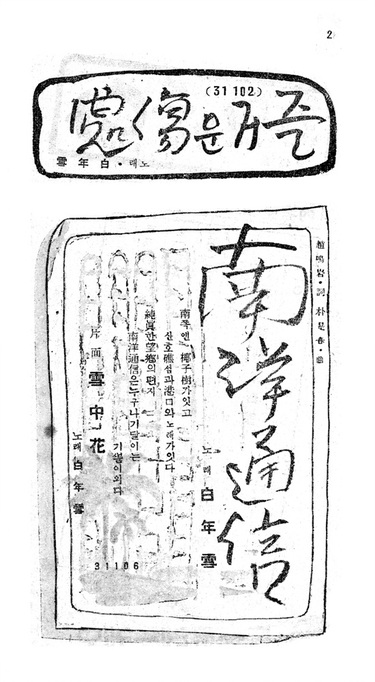 2
(31 102)
즐거운傷處
노래・白年雪
趙鳴岩・詞 朴是春・曲
南洋通信
노래 白年雪
南쪽엔 椰子樹가잇고
산호礁섬과港口와노래가잇다
純眞한望鄕의편지
南洋通信은누구나기달이는
기쁨이외다
片面 雪中花
노래 白年雪
31106